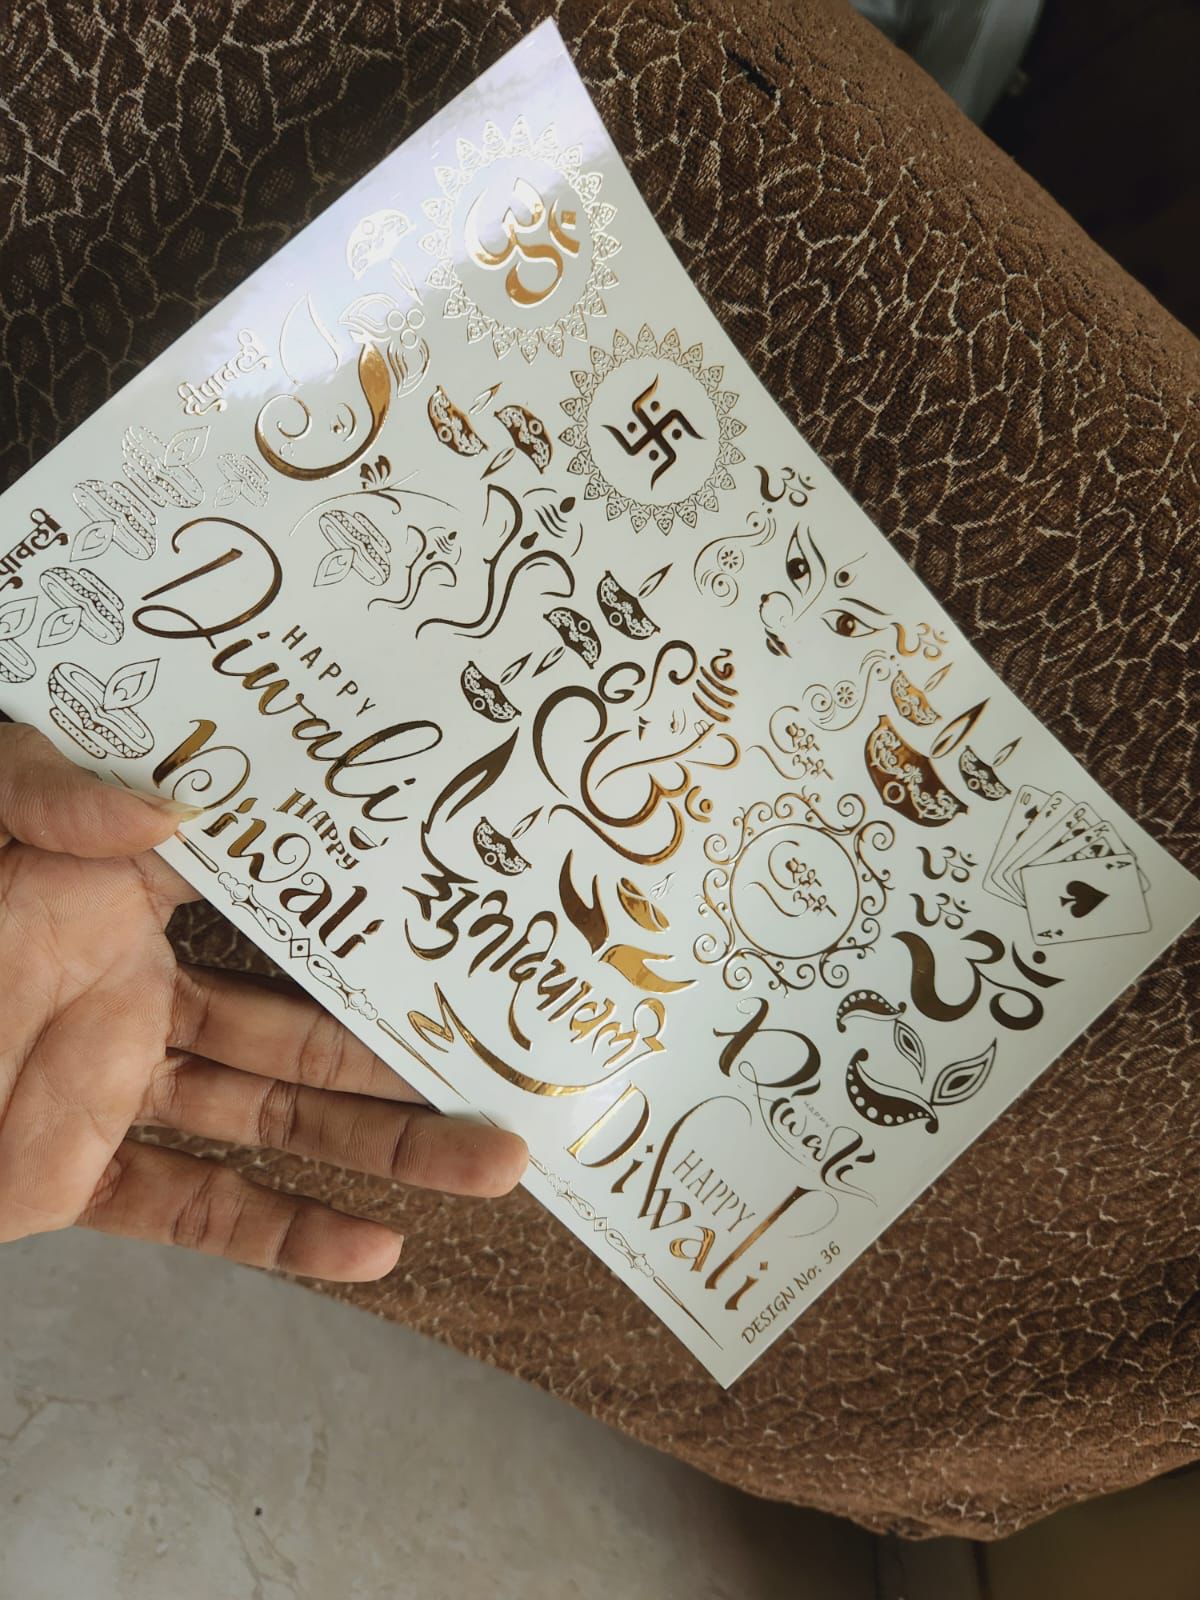 ॐ
दीपावली
ॐ
HAPPY
Diwali
ॐ
HAPPY
Diwali
शुभ दीपावली
ॐ
ॐ
ॐ
10
2
Q
K
A
A
HAPPY
Diwali
HAPPY
Diwali
DESIGN No. 36